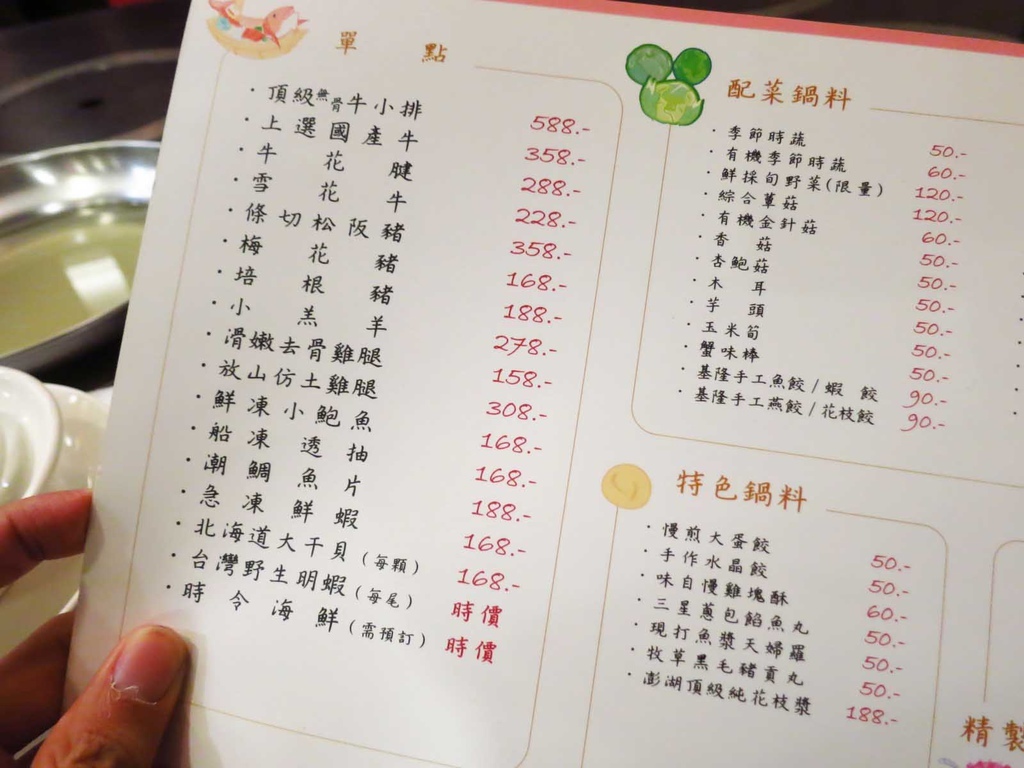 單 點
· 頂級無骨牛小排 588.-
· 上選國產牛 358.-
· 牛花腱 288.-
· 雪花牛 228.-
· 條切松阪豬 358.-
· 梅花豬 168.-
· 培根豬 188.-
· 小羔羊 278.-
· 滑嫩去骨雞腿 158.-
· 放山仿土雞腿 308.-
· 鮮凍小鮑魚 168.-
· 船凍透抽 168.-
· 潮鯛魚片 188.-
· 急凍鮮蝦 168.-
· 北海道大干貝(每顆) 168.-
· 台灣野生明蝦(每尾) 時價
· 時令海鮮(需預訂) 時價
配菜鍋料
· 季節時蔬 50.-
· 有機季節時蔬 60.-
· 鮮採旬野菜(限量) 120.-
· 綜合蕈菇 120.-
· 有機金針菇 60.-
· 香菇 50.-
· 杏鮑菇 50.-
· 木耳 50.-
· 芋頭 50.-
· 玉米筍 50.-
· 蟹味棒 50.-
· 基隆手工魚餃/蝦餃 90.-
· 基隆手工燕餃/花枝餃 90.-
特色鍋料
· 慢煎大蛋餃 50.-
· 手作水晶餃 50.-
· 味自慢雞塊酥 60.-
· 三星蔥包餡魚丸 50.-
· 現打魚漿天婦羅 50.-
· 牧草黑毛豬貢丸 50.-
· 澎湖頂級純花枝漿 188.-
精製